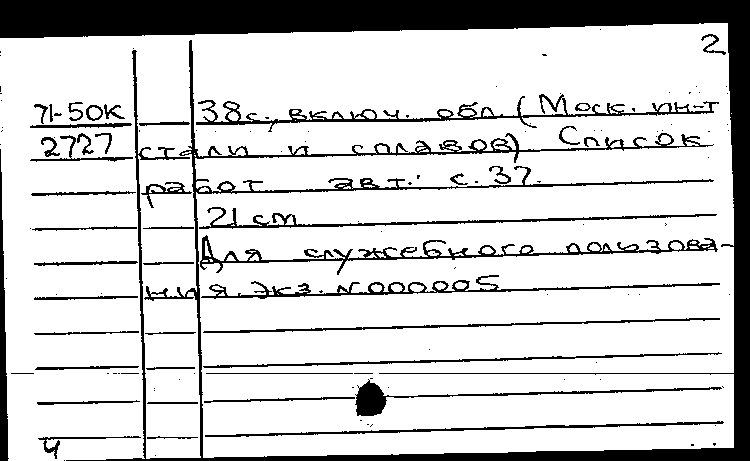 2
71-50К 38с., включ. обл. (Моск. ин-т
2727 стали и сплавов) Список
работ авт.: с. 37.
21 см
Для служебного пользова-
ния. Экз. N000005
ч